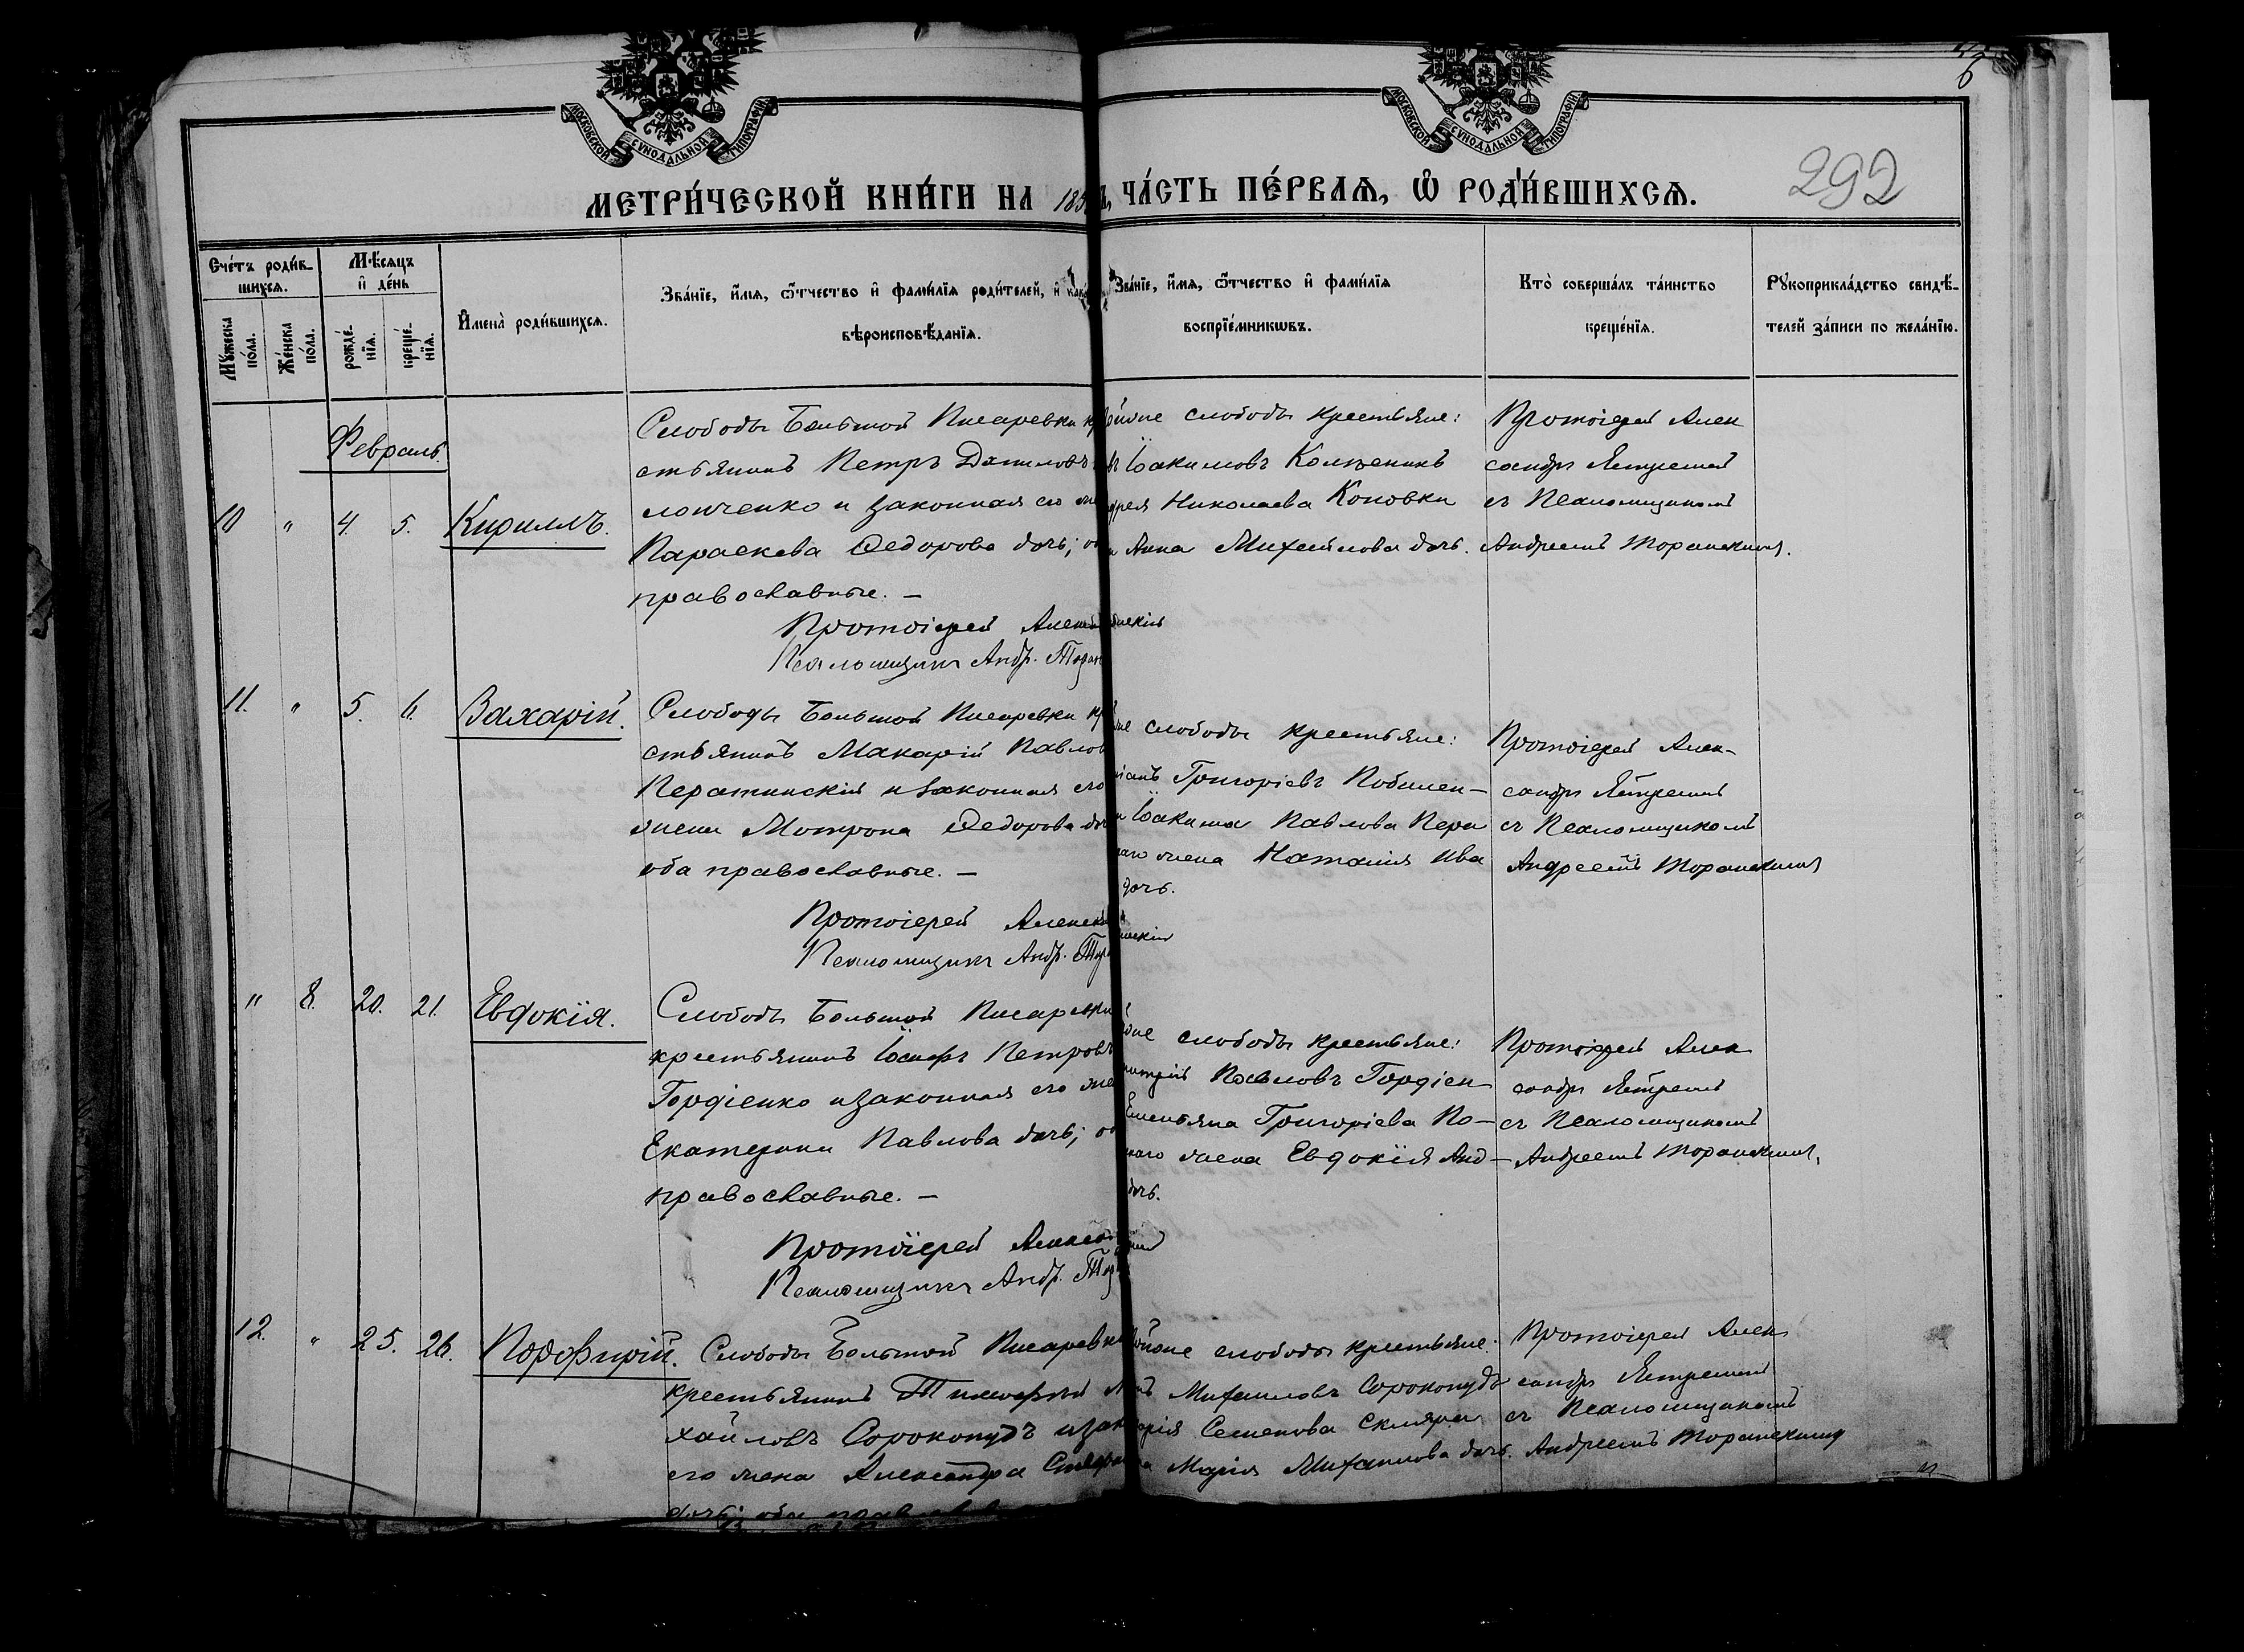 МОСКОВСКОЙ СѴНОДАЛЬНОЙ ТИПОГРАФІИ
МОСКОВСКОЙ СѴНОДАЛЬНОЙ ТИПОГРАФІИ
6
292
МЕТРИ́ЧЕСКОЙ КНИ́ГИ НА 18 ЧА́СТЬ ПЕ́РВАѦ, Ѡ РОДИ́ВШИХСѦ.
Счéтъ роди́в-
шихсѧ.
Мꙋжеска
по́ла.
Же́нска
по́ла.
Мѣ́сѧцъ
и҆ де́нь
рожде́-
нїѧ.
креще́-
нїѧ.
И҆мена̀ роди́вшихсѧ.
Зва́нїе, и҆́мѧ, ѻ҆́тчество и҆ фами́лїѧ роди́телей, и҆
вѣроисповѣ́данїѧ.
Зва́нїе, и҆́мѧ, ѻ҆́тчество и҆ фами́лїѧ
воспрїе́мникѡвъ.
Кто̀ соверша́лъ та́инство
креще́нїѧ.
Рꙋкоприкла́дство свидѣ́-
телей за́писи по жела́нїю.
Февраль.
10 " 4. 5. Кириллъ.
Слободы Большой Писаревки кре
стьянинъ Петръ Даниловъ
лопченко и законная его же
Параскева Ѳедорова дочь; об
православные. —
Протоіерей Алекс
Псаломщикъ Андр. Торан
слободы крестьяне:
Іоакимовъ Колпеникъ
Николаева Коновки
Анна Михайлова дочь.
Протоіерей Алек
сандръ Ястремскій
съ Псаломщикомъ
Андреемъ Торанскимъ.
11. " 5. 6. Захарій.
Слободы Большой Писаревки кре
стьянинъ Макарій Павлов
и законная его
жена Мотрона Ѳедорова доч
оба православные. —
Протоіерей Алекса
Псаломщикъ Андр. Тор
слободы крестьяне:
Григоріевъ Побилен-
Іоакима Павлова Пера
жена Наталія Ива
дочь.
Протоіерей Алек-
сандръ Ястремскій
съ Псаломщикомъ
Андреемъ Торанскимъ
" 8. 20. 21. Евдокія.
Слободы Большой Писаревки
крестьянинъ Іосифъ Петровъ
Гордіенко и законная его же
Екатерина Павлова дочь; об
православные. —
Протоіерей Алекса
Псаломщикъ Андр. Тор
слободы крестьяне:
Павловъ Гордіен-
Емельяна Григоріева По-
жена Евдокія Анд-
дочь.
Протоіерей Алек
сандръ Ястремскій
съ Псаломщикомъ
Андреемъ Торанскимъ,
12. " 25. 26. Порфирій.
Слободы Большой Писаревки
крестьянинъ Тимофей Ми
хайловъ Сорокопудъ и закон
его жена Александра Стефан
дочь; оба прав
слободы крестьяне:
Михаиловъ Сорокопудъ
Семенова Скляра
Марія Михаилова дочь.
Протоіерей Алек
сандръ Ястремскій
съ Псаломщикомъ
Андреемъ Торанскимъ